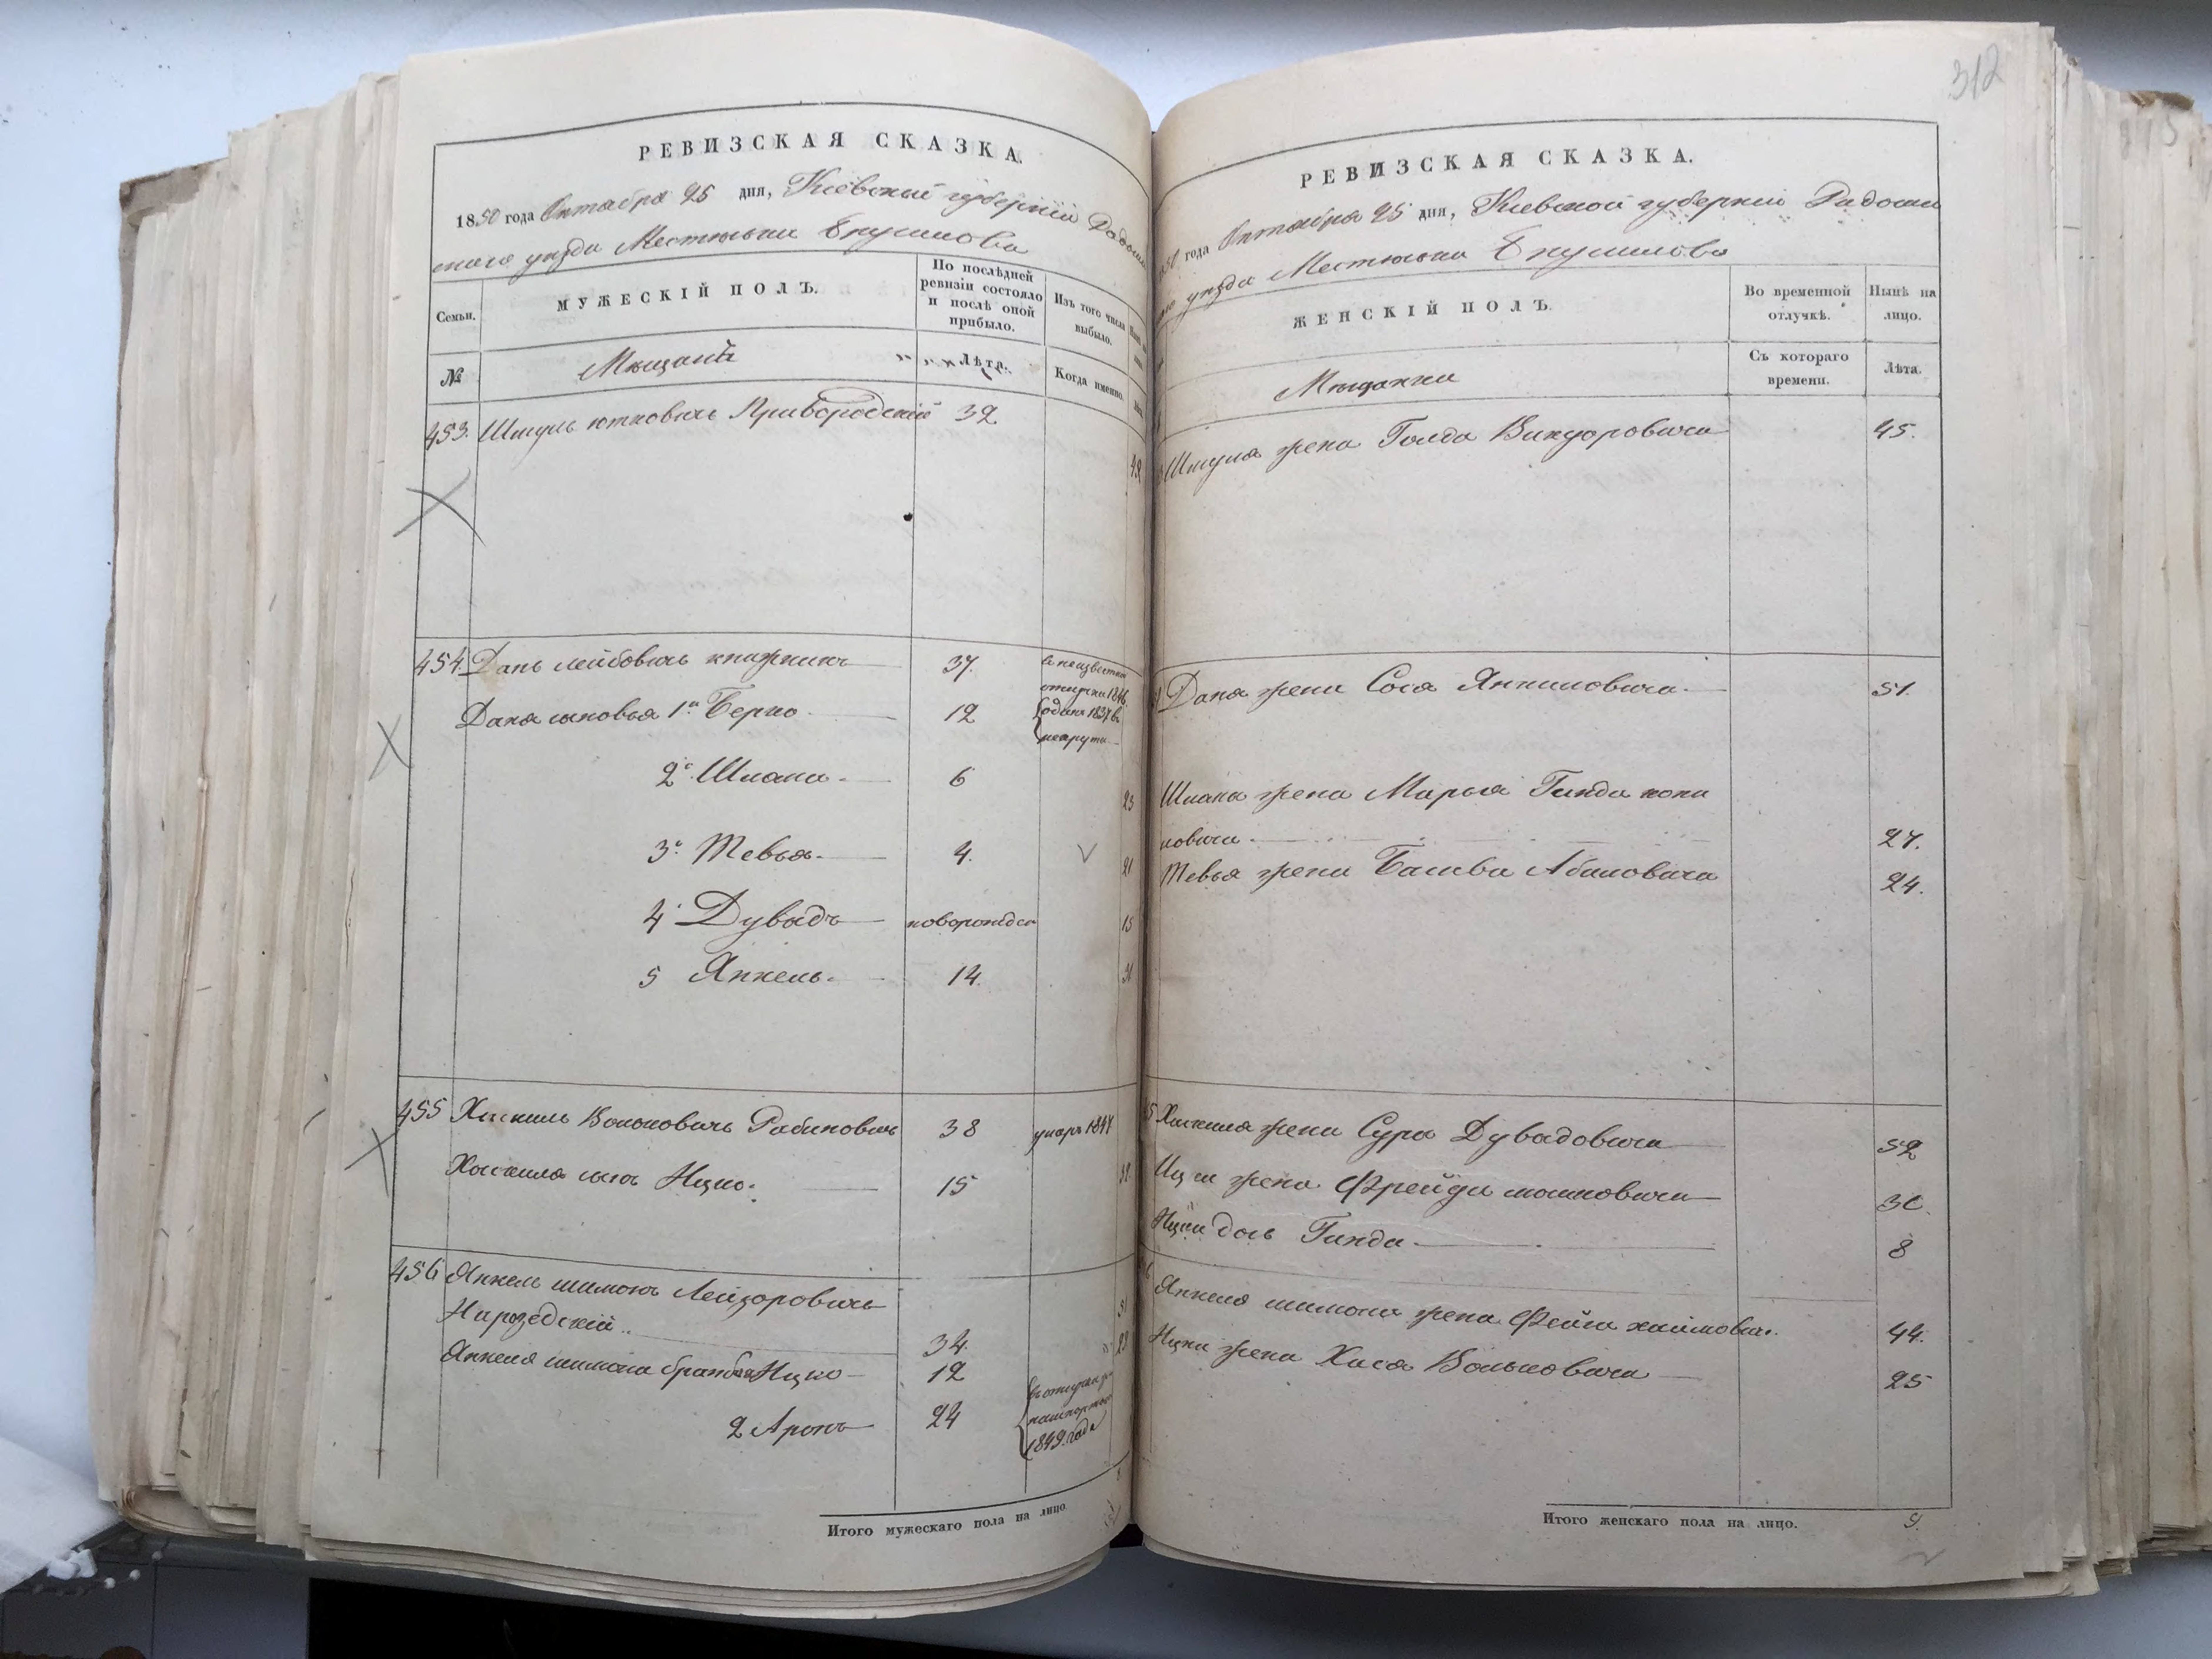 РЕВИЗСКАЯ СКАЗКА.
1850 года Октября 25 дня, Киевской губерніи Радомы
скаго уезда Местечка Брусилова
Семьи.
МУЖЕСКІЙ ПОЛЪ.
По послѣдней ревизіи состояло и послѣ оной прибыло.
Изъ того числа выбыло.
№
Мещане
Лѣта.
Когда именно.
453. Шмуль Юткович Пригородскій 32
42
454. Дань Лейбович 37. в неизвестной отлучке 1846
Даня сыновья 1й Берко 12 1837 в рекруты
2й Шлома 6
23
3й Тевья 4.
21
4й Дувидъ новорожден
15
5 Янкель 14.
31
455 Хаскиль Волькович Рабинович 38 умаръ 1847
Хаскиля сынъ Ицко 15
32
456 Янкель Шимонъ Лейзорович
34.
51
Янкеля Шимона братья Ицко 12
23
2 Аронъ 24 в отлучке по паспорту 1849 года
Итого мужескаго пола на лицо.
312
РЕВИЗСКАЯ СКАЗКА.
года Октября 25 дня, Киевской губерніи Радомы
уезда Местечка Брусилова
ЖЕНСКІЙ ПОЛЪ.
Во временной отлучкѣ.
Нынѣ на лицо.
Мещанки
Съ котораго времени.
Лѣта.
Шмуля жена Голда 45.
Даня жена Сося Янкиловича 51.
Шлома жена Марья Гинда
новича 27.
Тевья жена Башева 24.
Хаскиля жена Сура Дувидовича 52
Ицка жена Фрейда Мошковича 30.
Ицка дочь Гинда 8
Янкеля Шимона жена Фейга Хаимович. 44.
Ицка жена Хася Вольковича 25
Итого женскаго пола на лицо. 9.